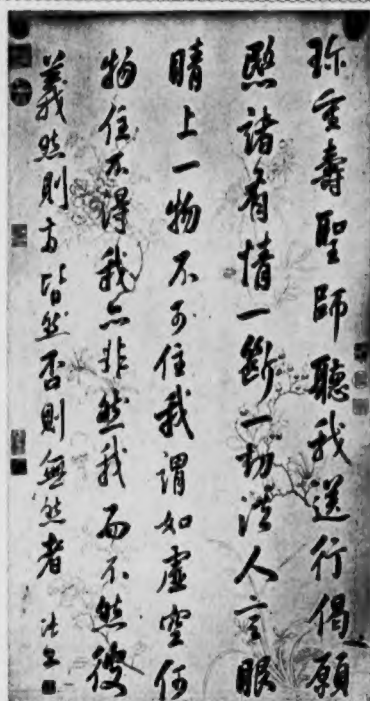 珎重壽聖師聽我送行偈願
愍諸有情一斷一切法人言眼
睛上一物不可住我謂如虛空何
物住不得我亦非然我而不然彼
義然則兩皆然否則無然者